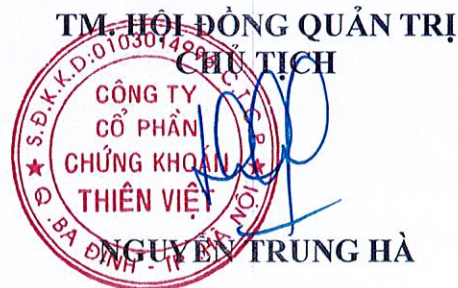 TM. HỘI ĐỒNG QUẢN TRỊ
CHỦ TỊCH
S.Đ.K.K.D:0103014998 C.T.C.P
CÔNG TY
CỔ PHẦN
CHỨNG KHOÁN
THIÊN VIỆT
Q. BA ĐÌNH - TP HÀ NỘI
NGUYỄN TRUNG HÀ